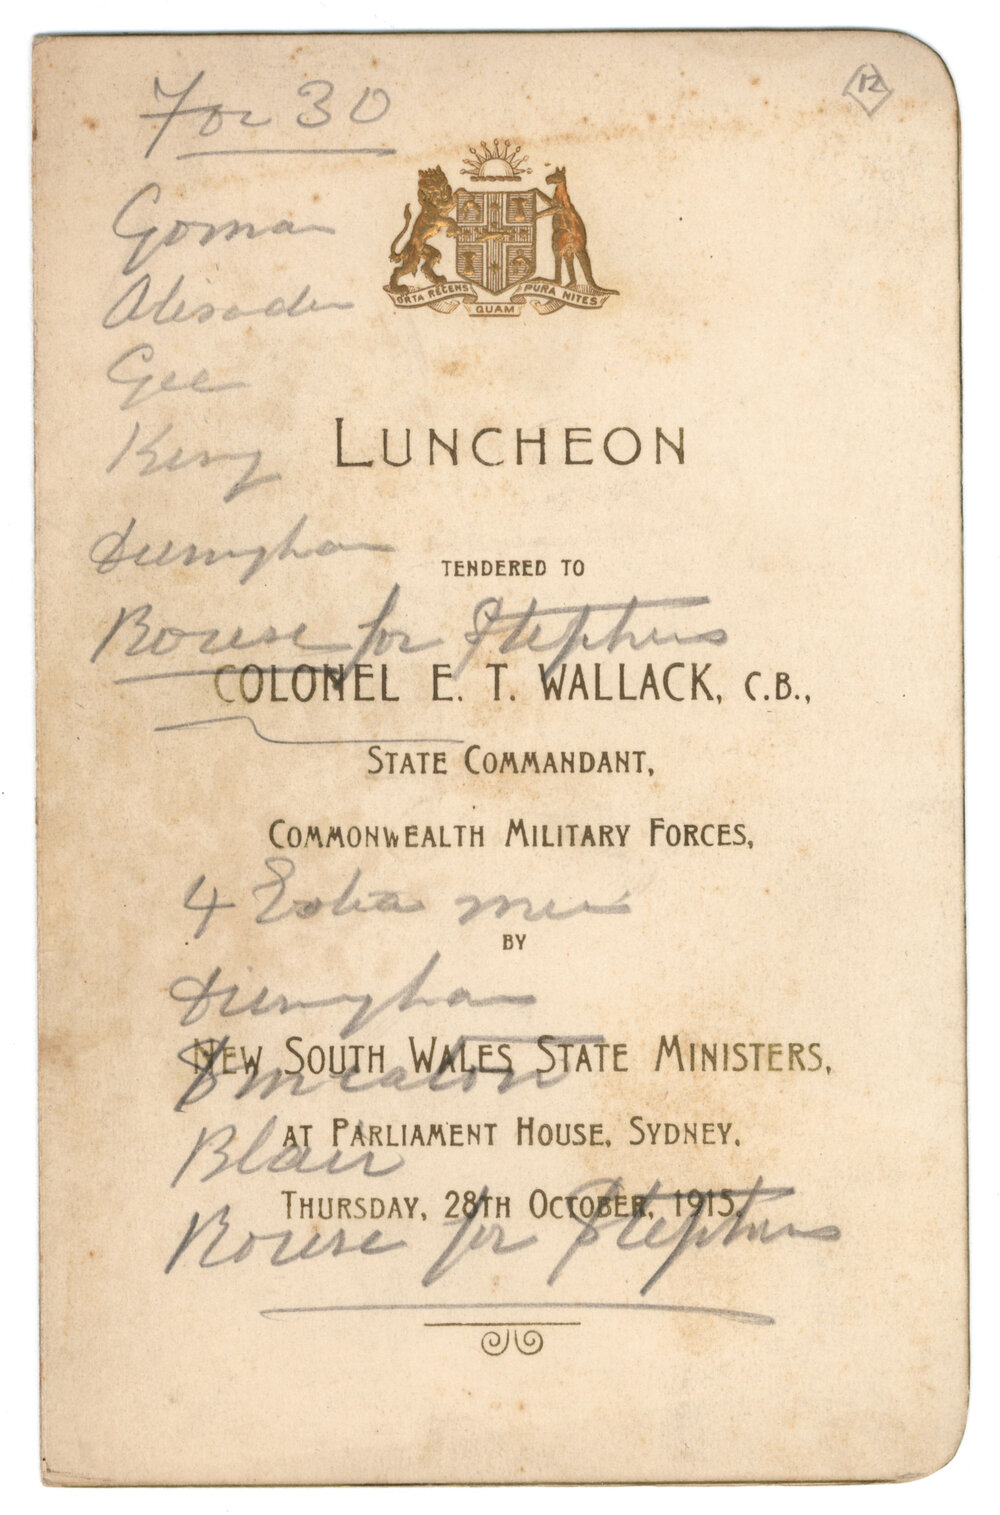 12
For 30
ORTA RECENS QUAM PURA NITES
Gorman
Gee
LUNCHEON
King
TENDERED TO
Rouse for Stephens
COLONEL E. T. WALLACK, C.B.,
STATE COMMANDANT,
COMMONWEALTH MILITARY FORCES,
4 Extra men
BY
NEW SOUTH WALES STATE MINISTERS,
Smeaton
AT PARLIAMENT HOUSE, SYDNEY,
Blair
THURSDAY, 28TH OCTOBER, 1915.
Rouse for Stephens